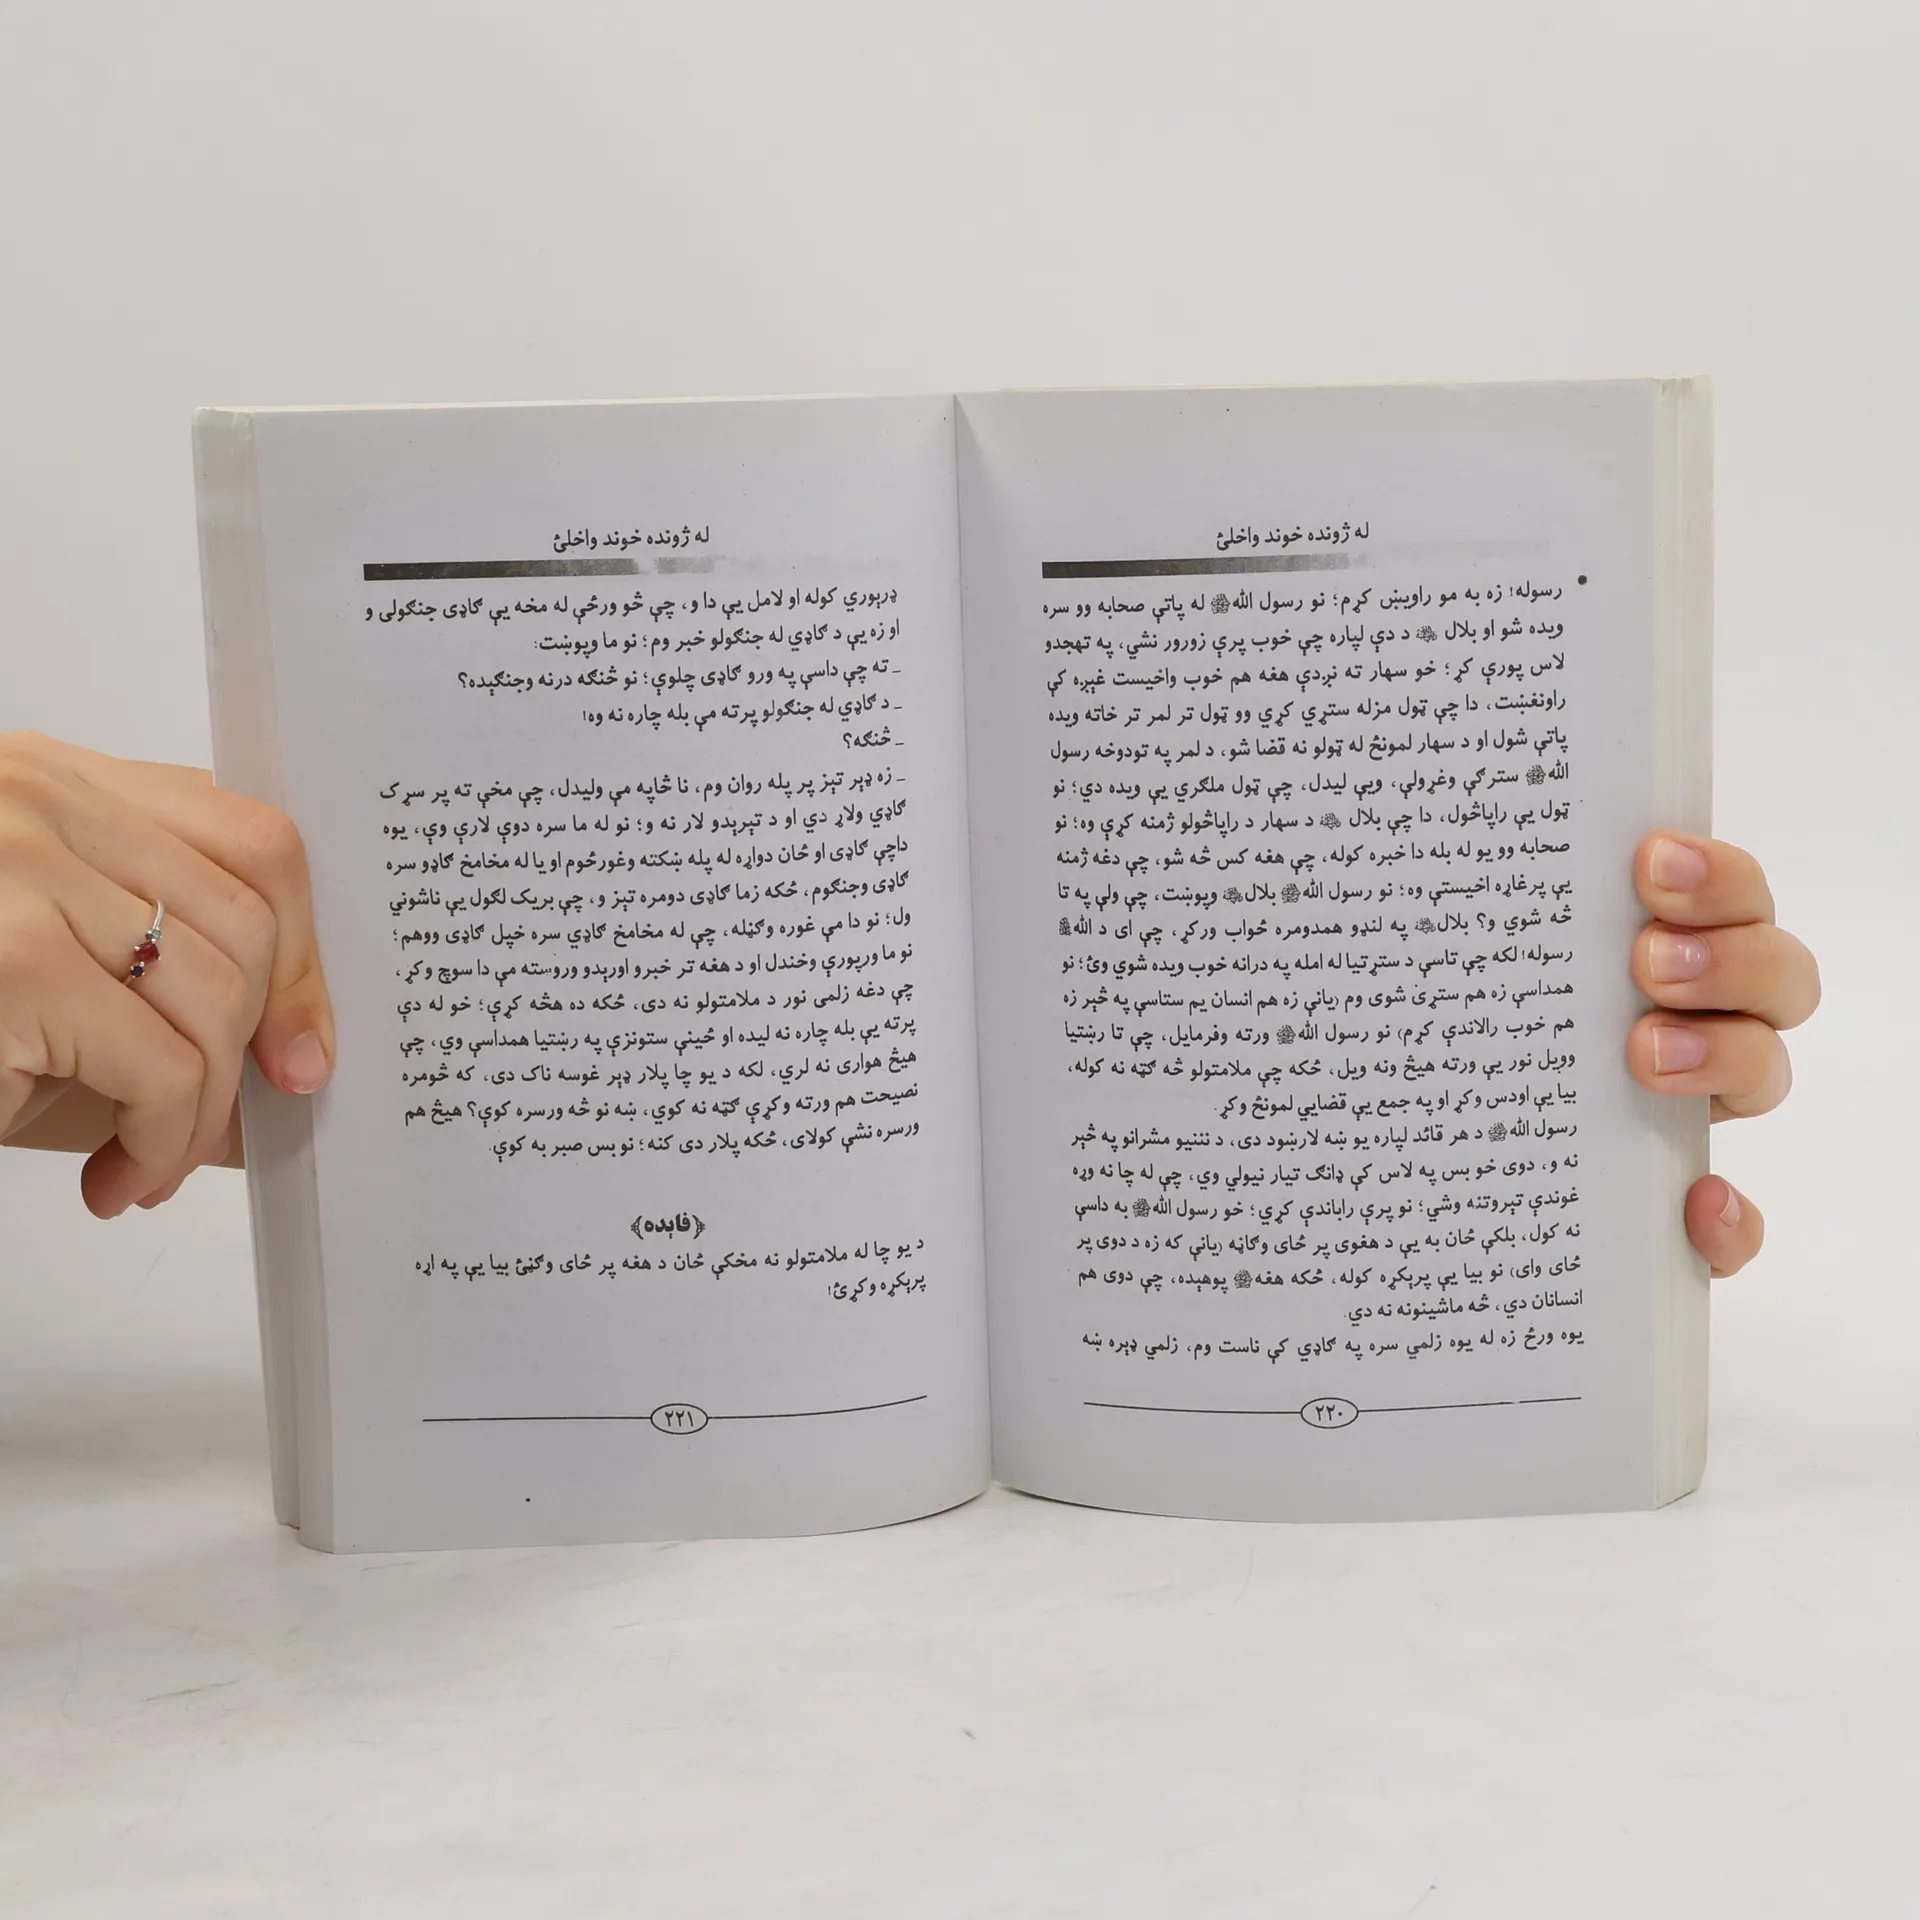 له ژونده خوند واخلئ
رسوله! زه به مو راويښ كړم؛ نو رسول اللهﷺ له پاتې صحابه وو سره
ويده شو او بلال د دې لپاره چې خوب پرې زورور نشي، په تهجدو
لاس پورې كړ؛ خو سهار ته نږدې هغه هم خوب واخيست غېږه كې
راونغښت، دا چې ټول مزله ستړي كړي وو ټول تر لمر تر خاته ويده
پاتې شول او د سهار لمونځ له ټولو نه قضا شو، د لمر په تودوخه رسول
اللهﷺ سترګې وغړولې، ويې ليدل، چې ټول ملګري يې ويده دي؛ نو
ټول يې راپاڅول، دا چې بلال د سهار د راپاڅولو ژمنه كړې وه؛ نو
صحابه وو يو له بله دا خبره كوله، چې هغه كس څه شو، چې دغه ژمنه
يې پرغاړه اخيستې وه؛ نو رسول اللهﷺ بلال وپوښت، چې ولې په تا
څه شوي و؟ بلال په لنډو همدومره ځواب وركړ، چې اى د اللهﷻ
رسوله! لكه چې تاسې د ستړتيا له امله په درانه خوب ويده شوي وئ؛ نو
همداسې زه هم ستړى شوى وم (يانې زه هم انسان يم ستاسې په څېر زه
هم خوب رالاندې كړم) نو رسول اللهﷺ ورته وفرمايل، چې تا رښتيا
وويل نور يې ورته هيڅ ونه ويل، ځكه چې ملامتولو څه ګټه نه كوله،
بيا يې اودس وكړ او په جمع يې قضايي لمونځ وكړ.
رسول اللهﷺ د هر قائد لپاره يو ښه لارښود دى، د نننيو مشرانو په څېر
نه و، دوى خو بس په لاس كې ډانګ تيار نيولي وي، چې له چا نه وړه
غوندې تېروتنه وشي؛ نو پرې راباندې كړي؛ خو رسول اللهﷺ به داسې
نه كول، بلكې ځان به يې د هغوى پر ځاى وګاڼه (يانې كه زه د دوى پر
ځاى واى) نو بيا يې پرېكړه كوله، ځكه هغهﷺ پوهېده، چې دوى هم
انسانان دي، څه ماشينونه نه دي.
يوه ورځ زه له يوه زلمي سره په ګاډي كې ناست وم، زلمي ډېره ښه
٢٢٠
له ژونده خوند واخلئ
ډرېوري كوله او لامل يې دا و، چې څو ورځې له مخه يې ګاډى جنګولى و
او زه يې د ګاډي له جنګولو خبر وم؛ نو ما وپوښت:
ـ ته چې داسې په ورو ګاډى چلوې؛ نو څنګه درنه وجنګېده؟
ـ د ګاډي له جنګولو پرته مې بله چاره نه وه!
ـ څنګه؟
ـ زه ډېر تېز پر پله روان وم، نا څاپه مې وليدل، چې مخې ته پر سړک
ګاډي ولاړ دي او د تېرېدو لار نه و؛ نو له ما سره دوې لارې وې، يوه
داچې ګاډى او ځان دواړه له پله ښكته وغورځوم او يا له مخامخ ګاډو سره
ګاډى وجنګوم، ځكه زما ګاډى دومره تېز و، چې بريک لګول يې ناشوني
ول؛ نو دا مې غوره وګڼله، چې له مخامخ ګاډي سره خپل ګاډى ووهم؛
نو ما ورپورې وخندل او د هغه تر خبرو اورېدو وروسته مې دا سوچ وكړ،
چې دغه زلمى نور د ملامتولو نه دى، ځكه ده هڅه كړې؛ خو له دې
پرته يې بله چاره نه ليده او ځينې ستونزې په رښتيا همداسې وي، چې
هيڅ هوارى نه لري، لكه د يو چا پلار ډېر غوسه ناک دى، كه څومره
نصيحت هم ورته وكړې ګټه نه كوي، ښه نو څه ورسره كوې؟ هيڅ هم
ورسره نشې كولاى، ځكه پلار دى كنه؛ نو بس صبر به كوې.
﴿فايده﴾
د يو چا له ملامتولو نه مخكې ځان د هغه پر ځاى وګڼئ بيا يې په اړه
پرېكړه وكړئ!
٢٢١